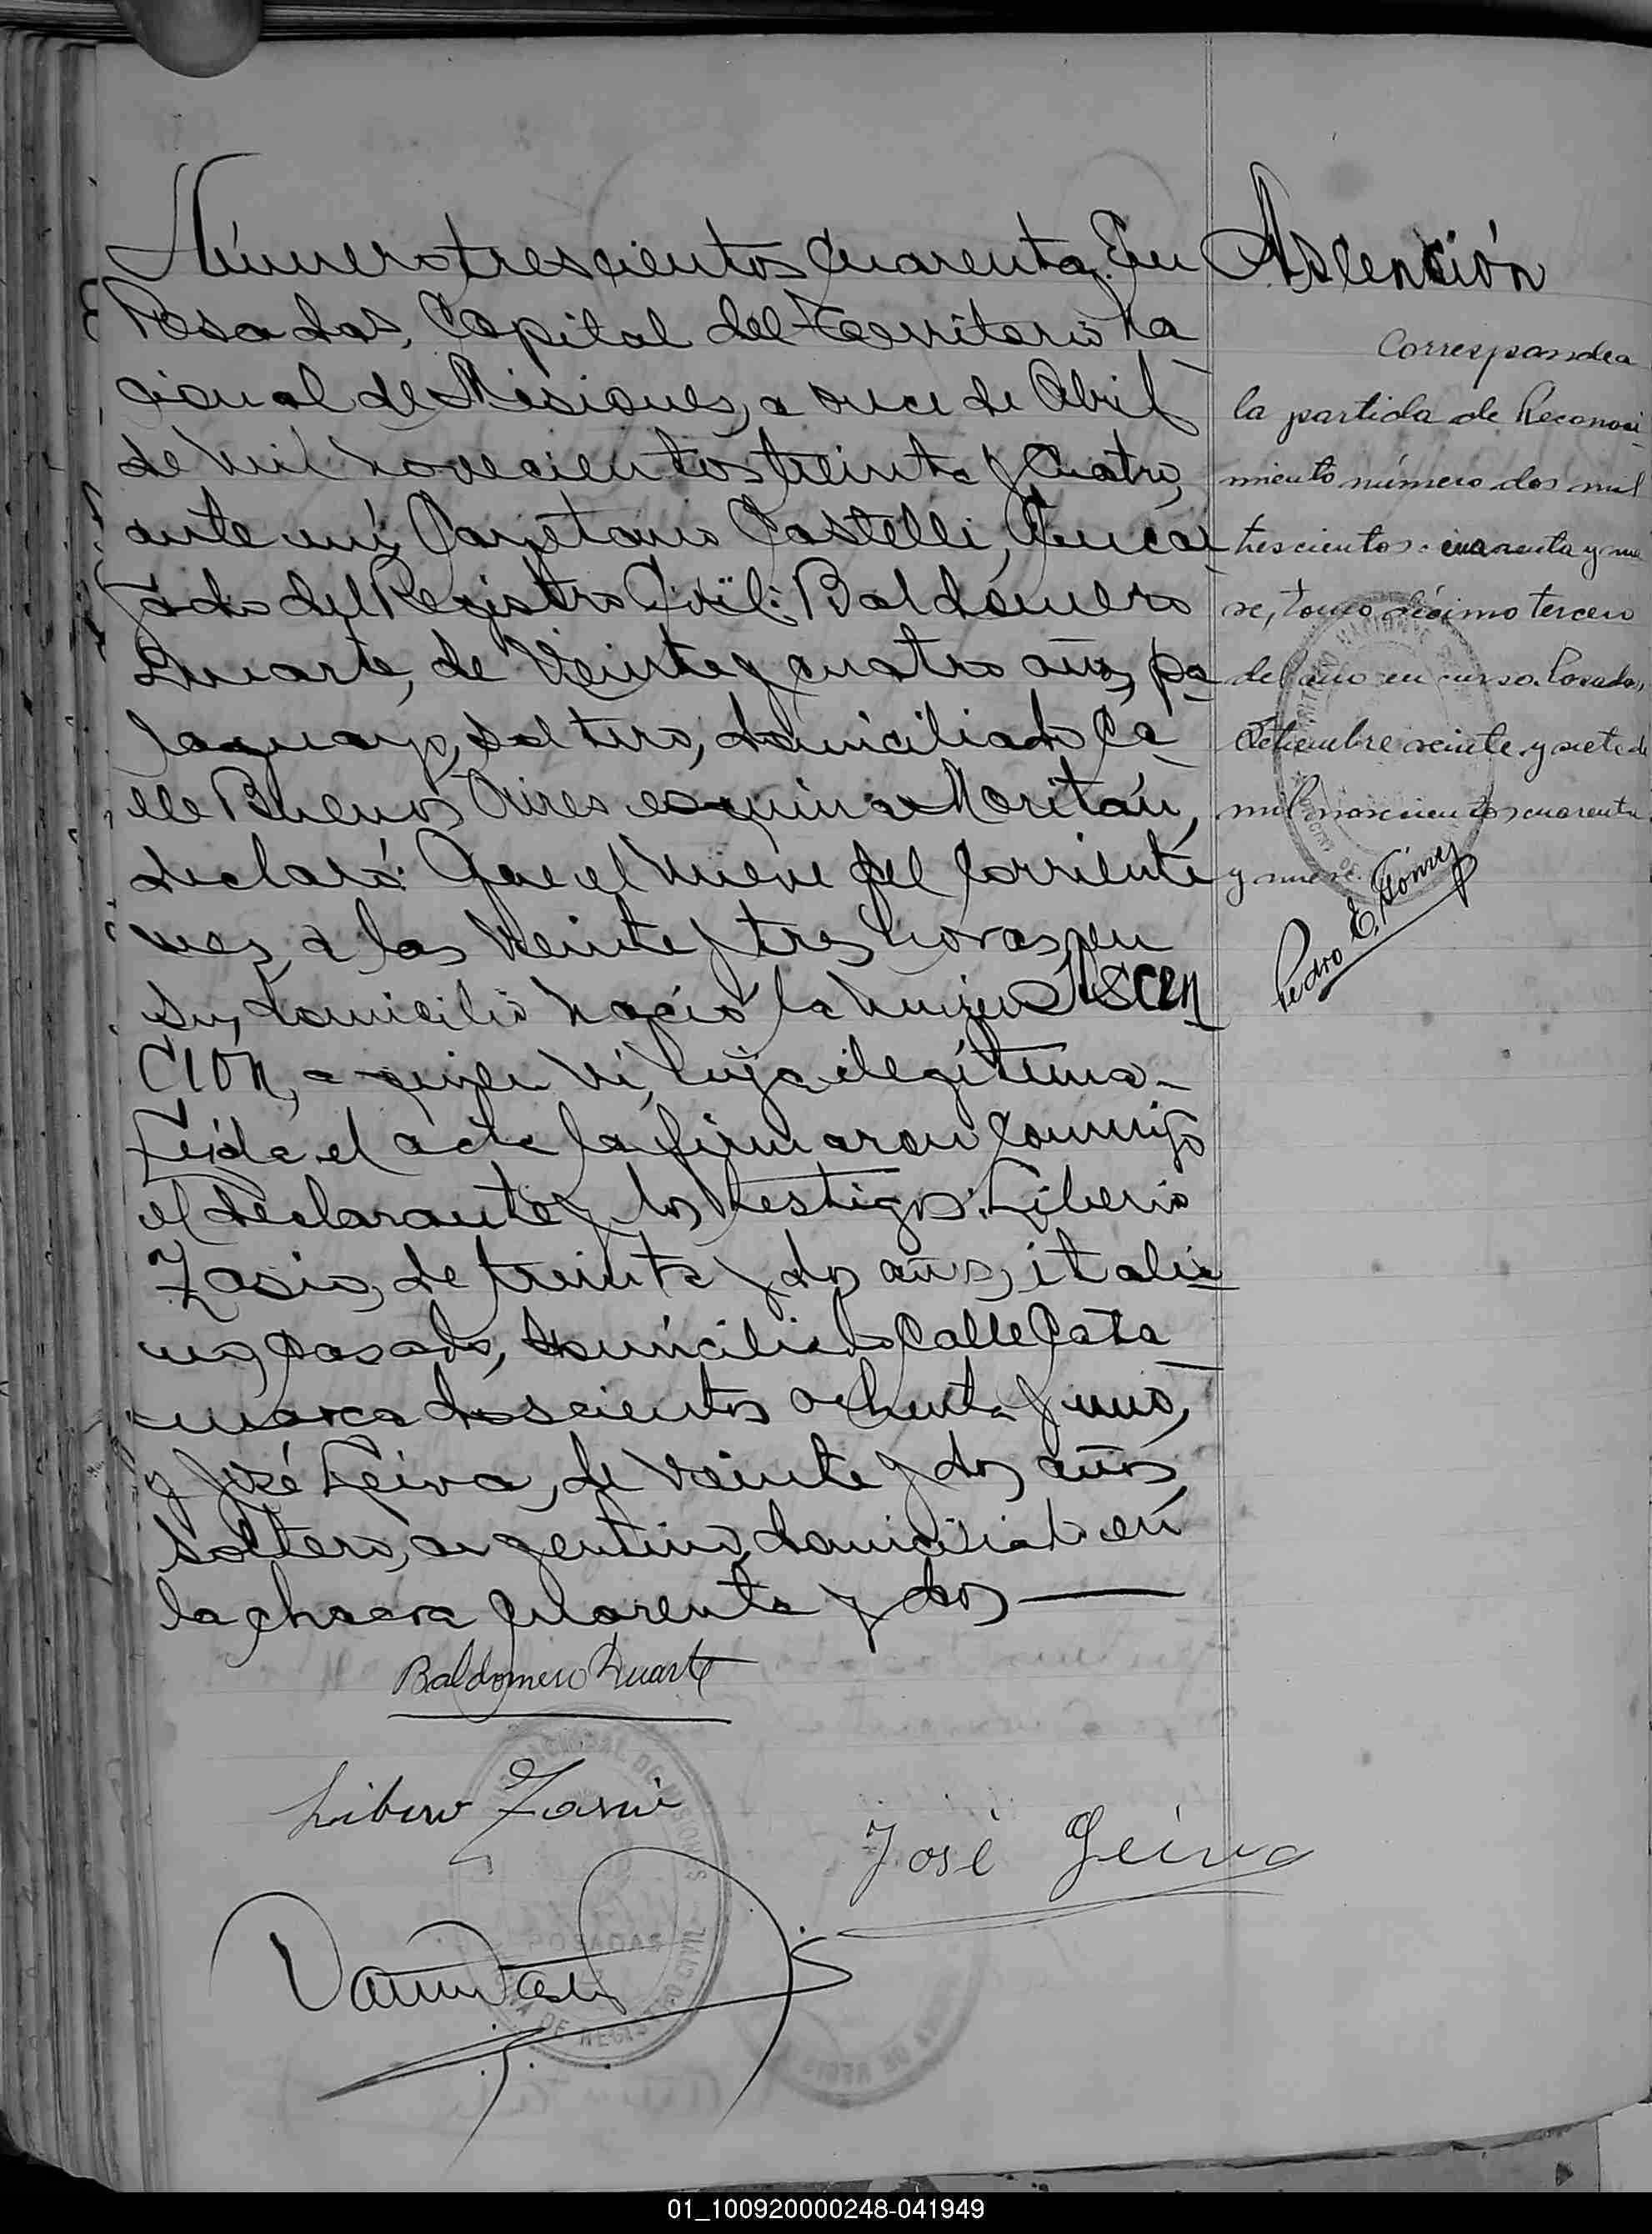 Número trescientos cuarenta. En
Posadas, Capital del Territorio Na
cional de Misiones, a once de Abril
de mil novecientos treinta y cuatro,
ante mí, Cayetano Castelli, Encar
gado del Registro Civil: Baldomero
Duarte, de veinte y cuatro años, pa
raguayo, soltero, domiciliado ca
lle Buenos Aires esquina Moritán,
declaró: Que el nueve del corriente
mes, a las veinte y tres horas, en
su domicilio nació la mujer Ascen
ción, a quien vi, hija ilegítima.
Leída el acta la firmaron conmigo
el declarante y los testigos: Liberio
Zasio, de treinta y dos años, italia
no, casado, domiciliado Calle Cata
marca doscientos ochenta y uno,
y José Leiva, de veinte y dos años,
soltero, argentino, domiciliado en
la chacra cuarenta y dos
Baldomero Duarte
José Leiva
POSADAS
Ascención
Corresponde a
la partida de Reconoci
miento número dos mil
trescientos cuarenta y nue
ve, tomo décimo tercero
del año en curso. Posadas,
Setiembre veinte y siete de
mil novecientos cuarenta
y nueve.
Pedro E. Gómez
01_100920000248-041949